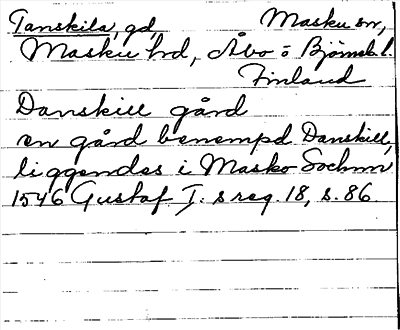 Tanskila, gd, Masku sn,
Masku hd, Åbo o Björneb. l.
Finland
Danskill gård
en gård benempd Danskill,
liggendes i Masko Sochnn
1546 Gustaf I:s reg. 18, s. 86